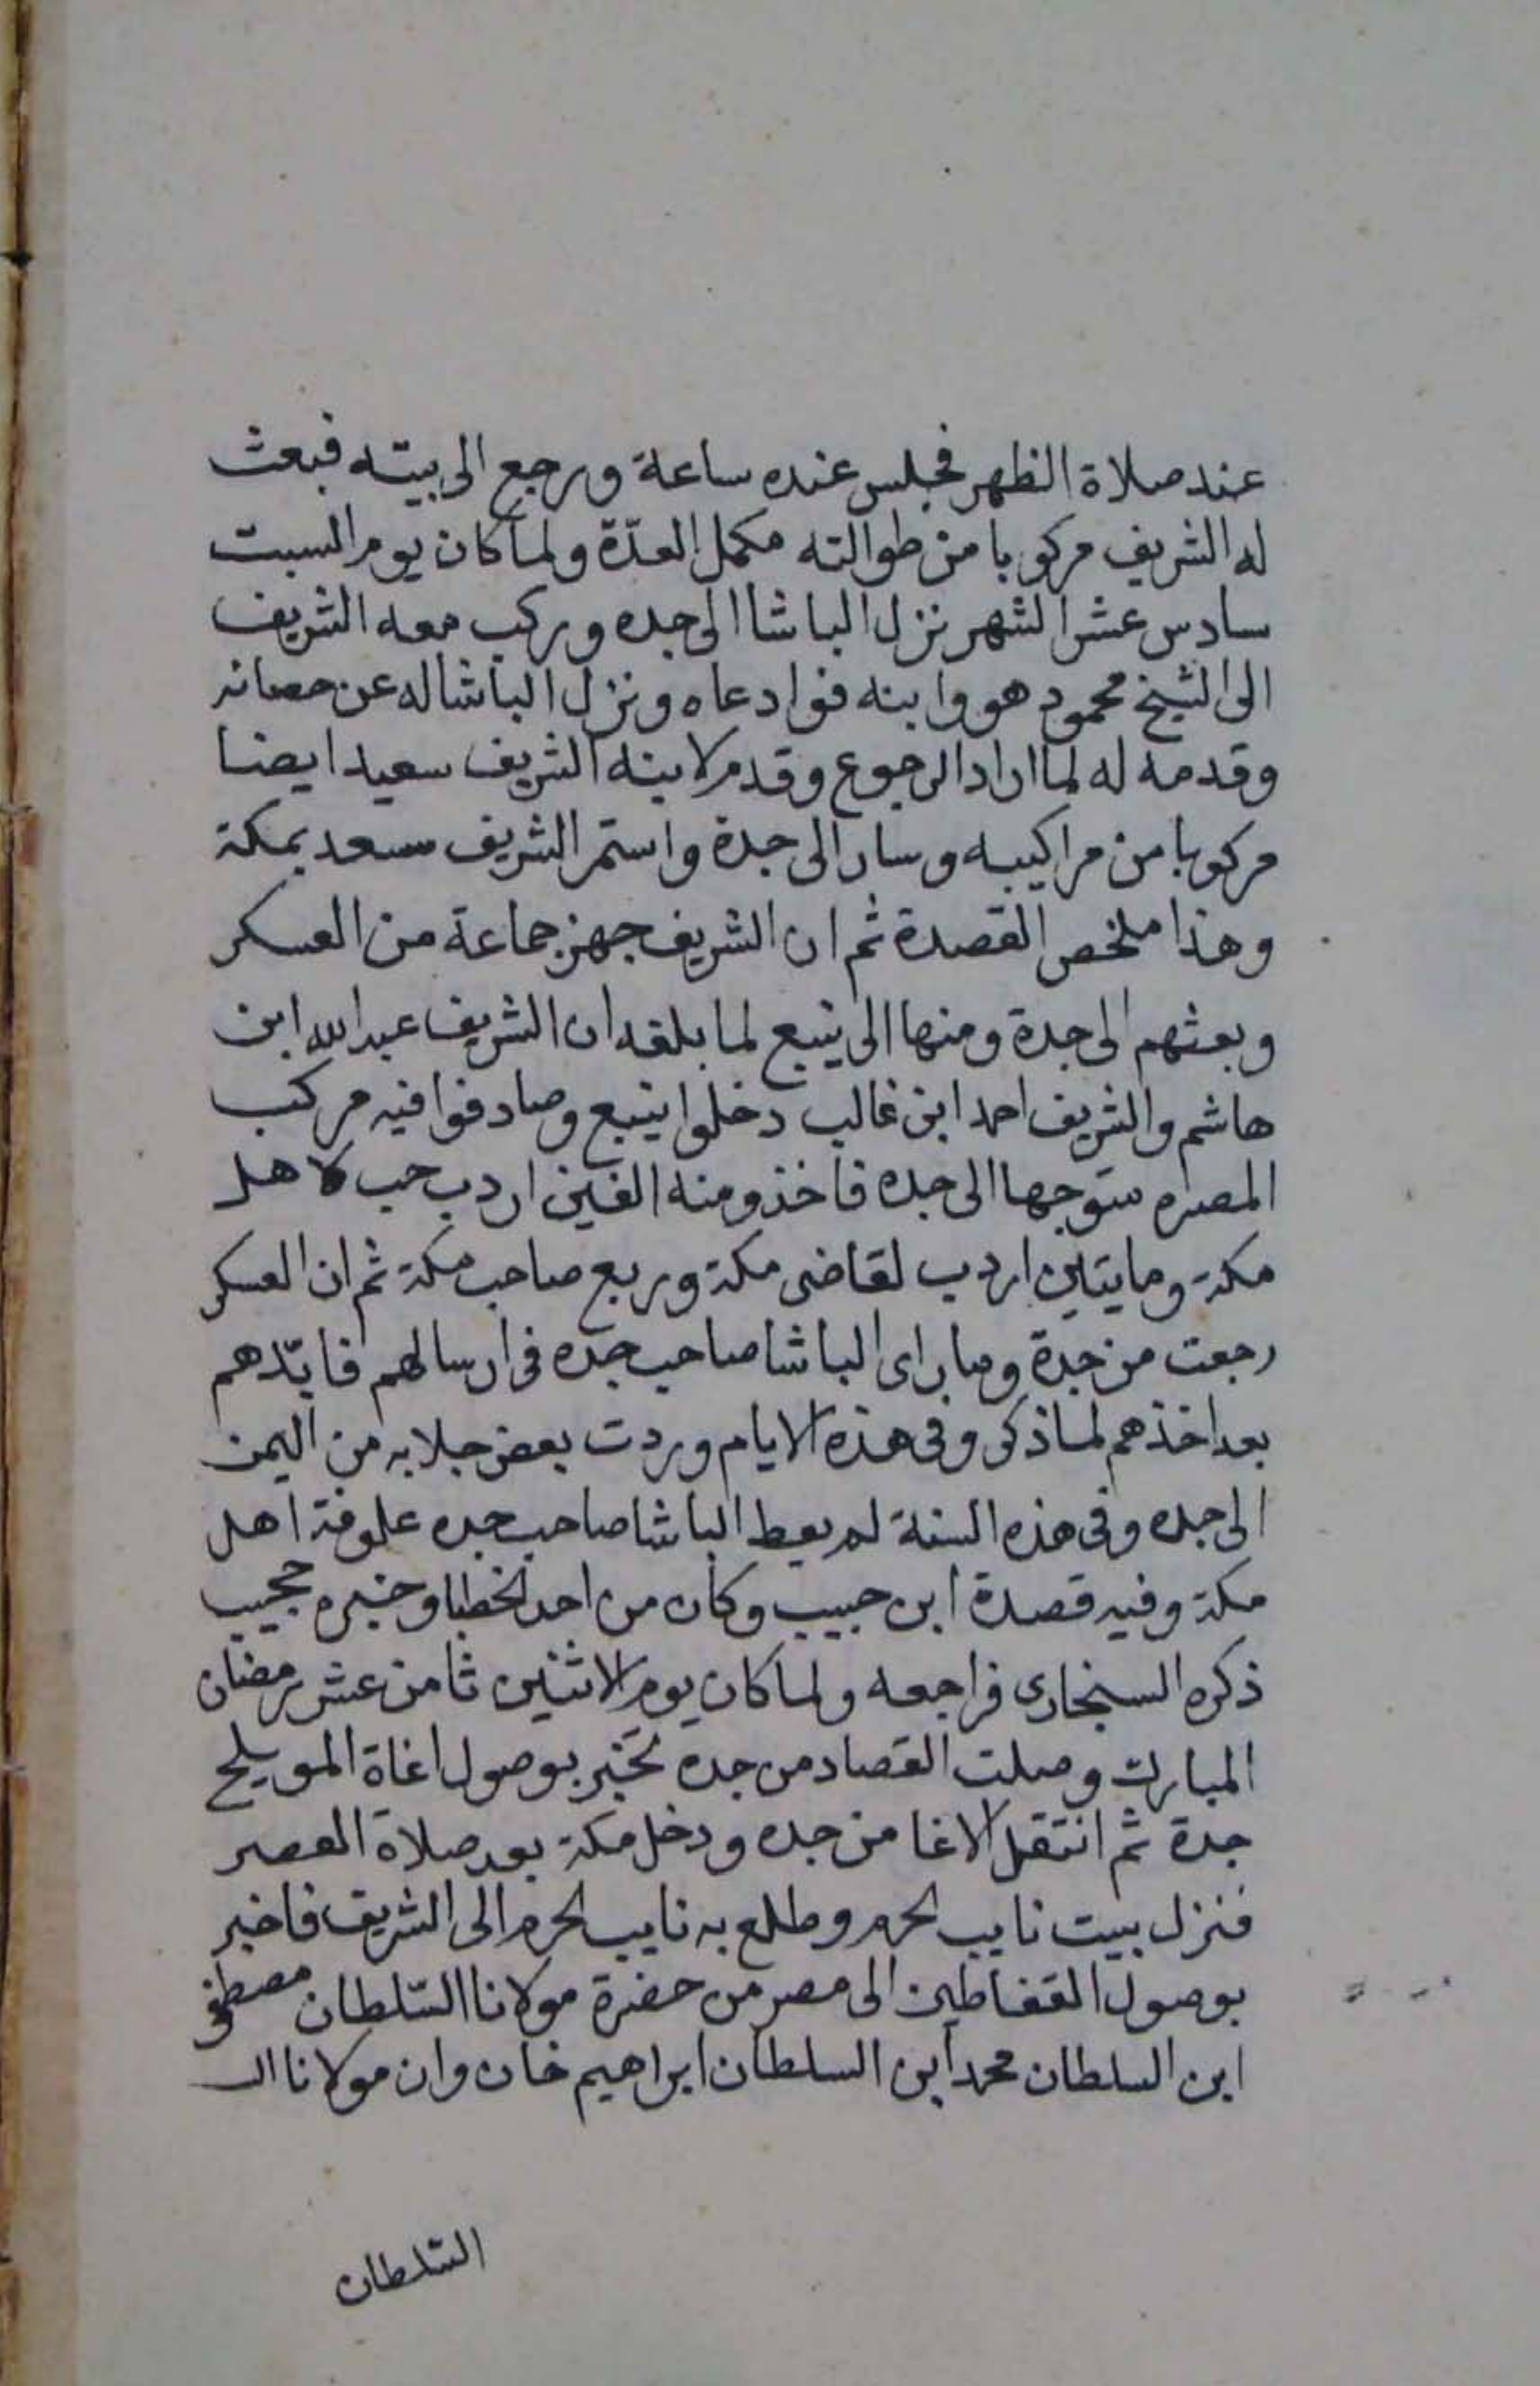 عند صلاة الظهر فجلس عنده ساعة ورجع الى بيته فبعث
له الشريف مركوبا من طوالته مكمل العدّة ولما كان يوم السبت
سادس عشر الشهر نزل الباشا الى جده وركب معه الشريف
الى الشيخ محمود هو وابنه فوادعاه ونزل الباشا له عن حصانه
وقدمه له لما اراد الرجوع وقدم لابنه الشريف سعيد ايضا
مركوبا من مراكيبه وسار الى جدة واستمر الشريف سعد بمكة
وهذا ملخص القصدة ثم ان الشريف جهز جماعة من العسكر
وبعثهم الى جدة ومنها الى ينبع لما بلغه ان الشريف عبدالله ابن
هاشم والشريف احمد ابن غالب دخلوا ينبع وصادفوا فيه مركب
المصره متوجها الى جده فاخذو منه الفين اردب حب لاهل
مكة ومايتاين اردب لقاضى مكة وربع صاحب مكة ثم ان العسكر
رجعت من جدة وما راى الباشا صاحب جده فى ارسالهم فايدهم
بعد اخذهم لما ذكر وفى هذه الايام وردت بعض جلابه من اليمن
الى جده وفى هذه السنة لم يعط الباشا صاحب جده علوفة اهل
مكة وفيه قصدة ابن حبيب وكان من احد الخطبا وخبره عجيب
ذكره السنجارى فراجعه ولما كان يوم الاثنين ثامن عشر رمضان
المبارك وصلت القصاد من جده تخبر بوصول اغاة المويلح
جدة ثم انتقل الاغا من جده ودخل مكة بعد صلاة العصر
فنزل بيت نايب الحرم وطلع به نايب الحرم الى الشريف فاخبر
بوصول القفاطين الى مصر من حضرة مولانا السّلطان مصطفى
ابن السلطان محمد ابن السلطان ابراهيم خان وان مولانا الـ
السّلطان